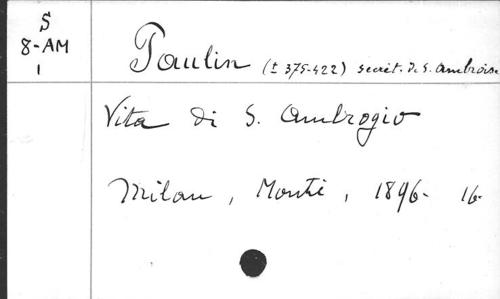 S
8-AM
1
Paulin (± 375-422) secrét. de S. Ambroise
Vita di S. Ambrogio
Milan, Monti, 1896- 16-